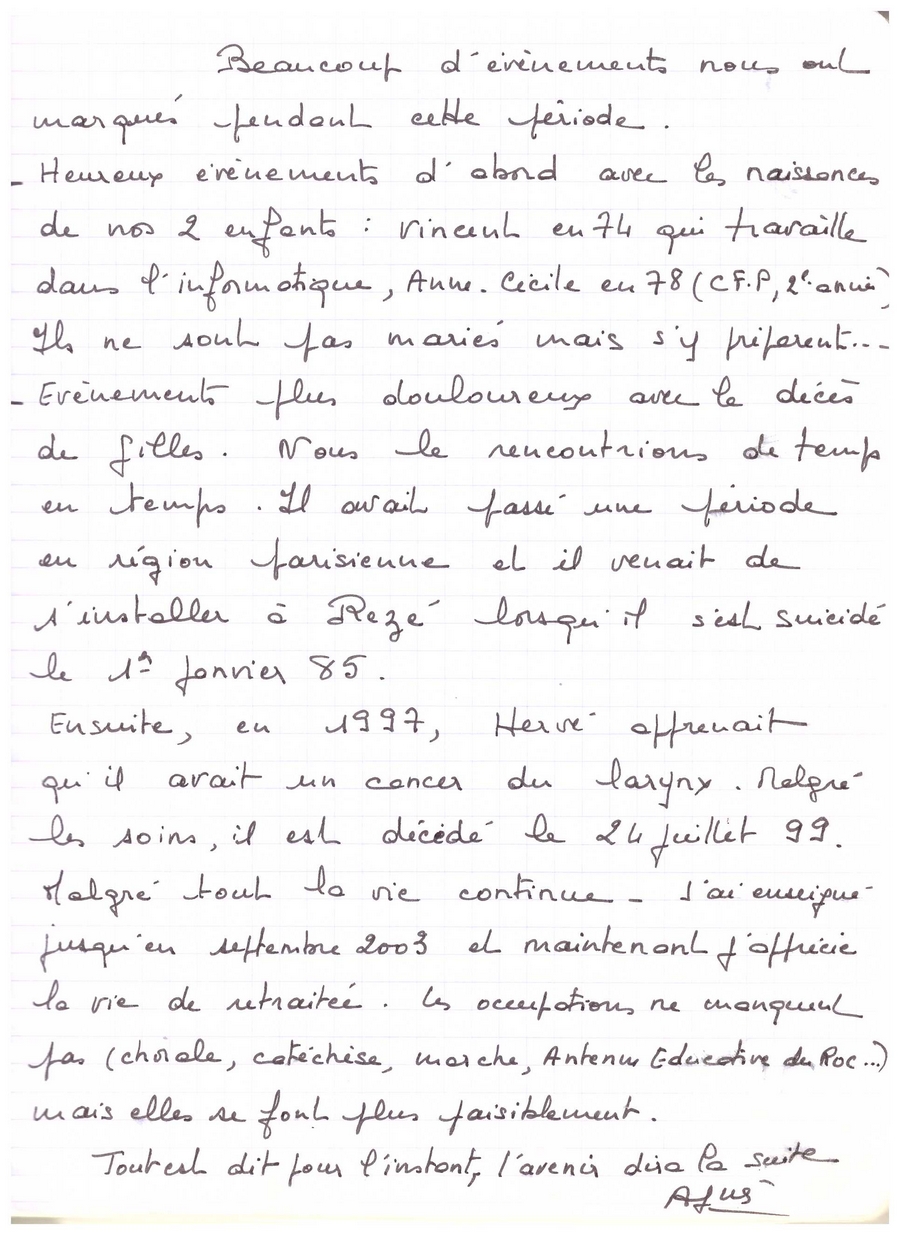 Beaucoup d'évènements nous ont
marqués pendant cette période.
- Heureux évènements d'abord avec les naissances
de nos 2 enfants : Vincent en 74 qui travaille
dans l'informatique, Anne-Cécile en 78 (C.F.P, 2e année)
Ils ne sont pas mariés mais s'y préparent...
- Evènements plus douloureux avec le décès
de Gilles. Nous le rencontrions de temps
en temps. Il avait passé une période
en région parisienne et il venait de
s'installer à Rezé lorsqu'il s'est suicidé
le 1er janvier 85.
Ensuite, en 1997, Hervé apprenait
qu'il avait un cancer du larynx. Malgré
les soins, il est décédé le 24 juillet 99.
Malgré tout la vie continue - J'ai enseigné
jusqu'en septembre 2003 et maintenant j'apprécie
la vie de retraitée. Les occupations ne manquent
pas (chorale, catéchèse, marche, Antenne Educative du Roc...)
mais elles se font plus paisiblement.
Tout est dit pour l'instant, l'avenir dira la suite